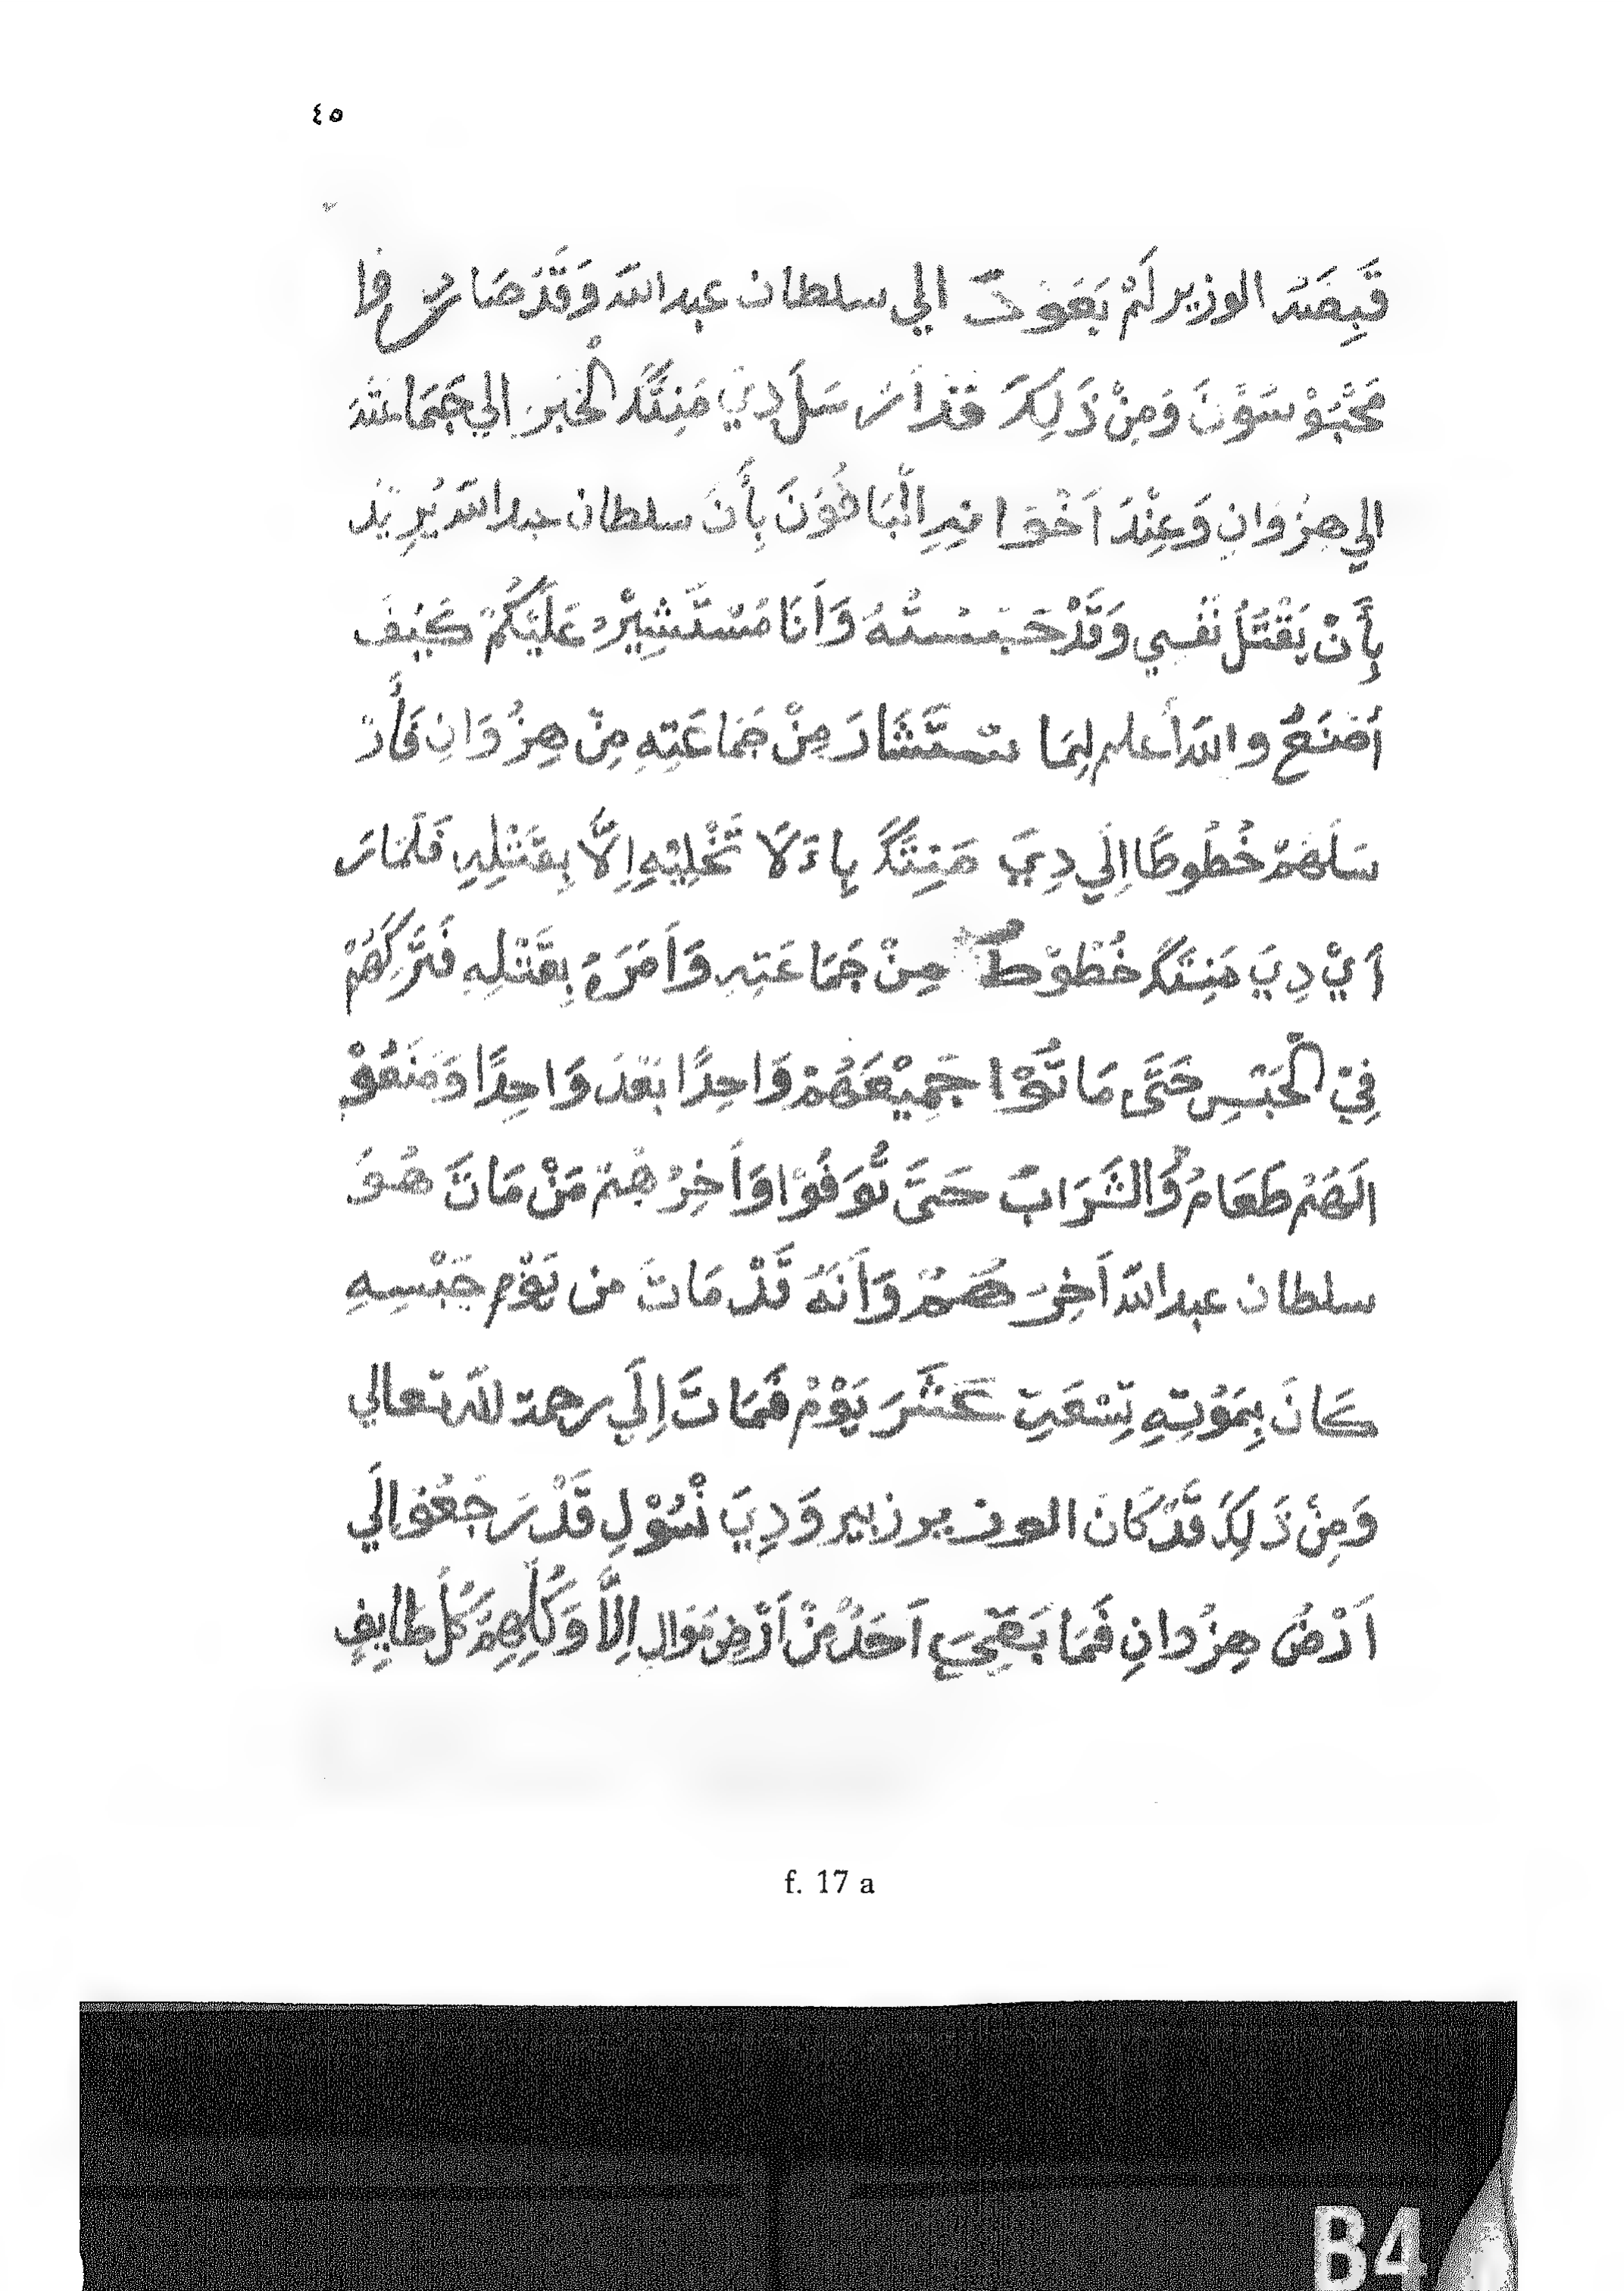 ٤٥
قَبِضَتَ الوزير لَمْ يَعَوْدَ الي سلطان عبدالله وَقَدْ صَارُوا
مَحْبُوْسَوْنَ وَمِنْ ذَلِكَ قَدْ اَرْسَلَ دِيَ مَنِتَّكَ الْخَبَرَ الي جَمَاعَتَ
الي هِزُوَانِ وَعِنْدَ اَخْوَانِهِ الْبَاقُوَنَ بِأَنَ سلطان عبدالله يُرِيْدُ
بِأَنْ يَقْتَلُ نَفْسِي وَقَدْ حَبَسْتُهُ وَاَنَا مُسْتَشِيْرْ عَلَيْكُمْ كَيْفَ
أَصْنَعُ والله أعلم لِمَا ستشَارَ مِنْ جَمَاعَتِهِ مِنْ هِزُوَانِ فَأَرْ
سَلَهُمْ خُطُوطًا اِلَي دِيَ مَنِتَّكَ بِاءَلَا تَخْلِيْهِ اِلَّا بِقَتْلِهِ فَلَمَا رَ
اَيْ دِيَ مَنِتَكَ خُطُوْطً مِنْ جَمَاعَتِهِ وَاَمَرَهُ بِقَتْلِهِ فَتَرَكَهُمْ
فِيْ الْحَبْسِ حَتَّى مَاتُوْا جَمِيْعَهُمْ وَاحِدًا بَعْدَ وَاحِدًا وَمَنَعُوْ
الَهُمْ طَعَامُ وَالشَرَابَ حَتَى تُوَفَوْا وَاَخِرُهُمْ مَنْ مَاتَ هُوَ
سلطان عبدالله اَخِرَهُمْ وَاَنَهُ قَدْ مَاتَ من يَوْمِ حَبْسِهِ
كَانَ بِمَوْتِهِ تِسْعَتِ عَشَرَ يَوْمُ فَمَاتَ اِلَي رحمة لله تعالي
وَمِنْ ذَلِكَ قَدْ كَانَ الوزير زبير وَدِيَ نْسُوْلِ قَدْ رَجَعُوالَي
اَرْضُ هِزُوانِ فَمَا بَقِيَ اَحَدُ مِنْ اَرْضِ مُوَالِ اِلَّا وَكُلُهِمْ كُلَ طَايِفِ
f. 17 a
B4